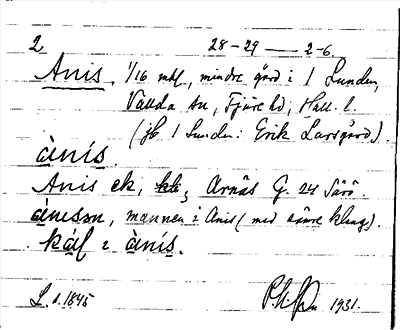 2 28-29 — 2-6.
Anis, 1/16 mtl, mindre gård i 1 Lunden,
Vallda sn, Fjäre hd, Hall. l.
(jb 1 Lunden: Erik Larsgård).
ànís.
Anis ek, Arnäs G. 24 Särö.
ànissn, mannen i Anis (med sämre klang).
kál i ànís.
L. s. 1845 1931.